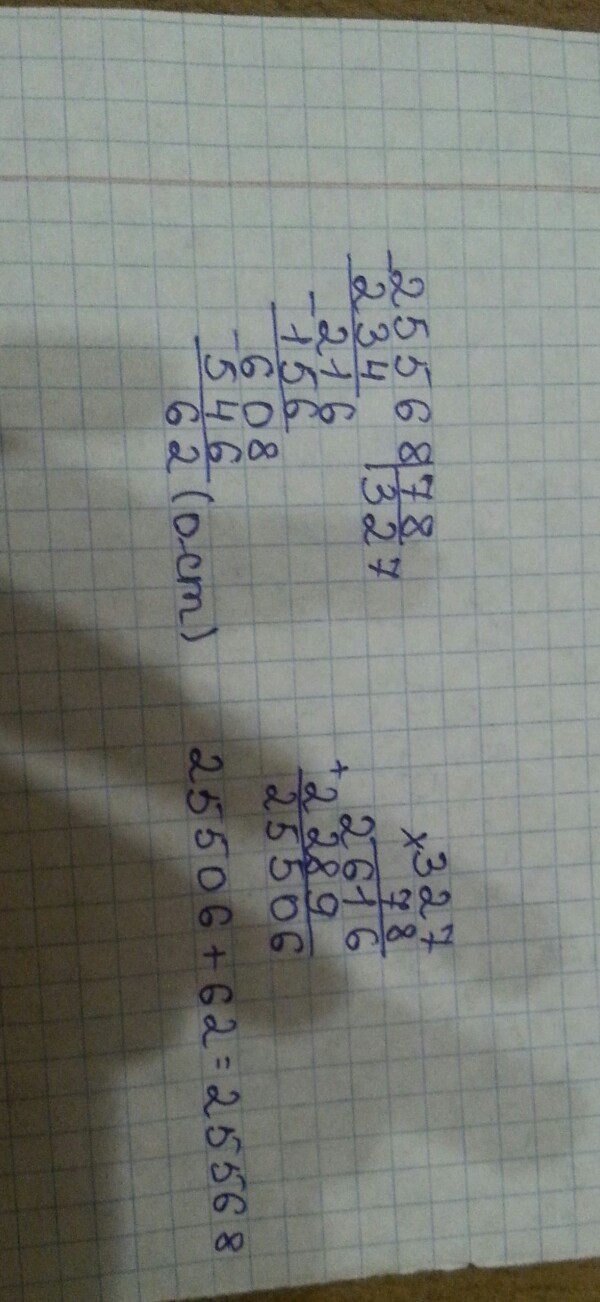 -25568|78
234 |327
-216
156
-608
546
62 (ост)
×327
78
2616
+2289
25506
25506+62=25568